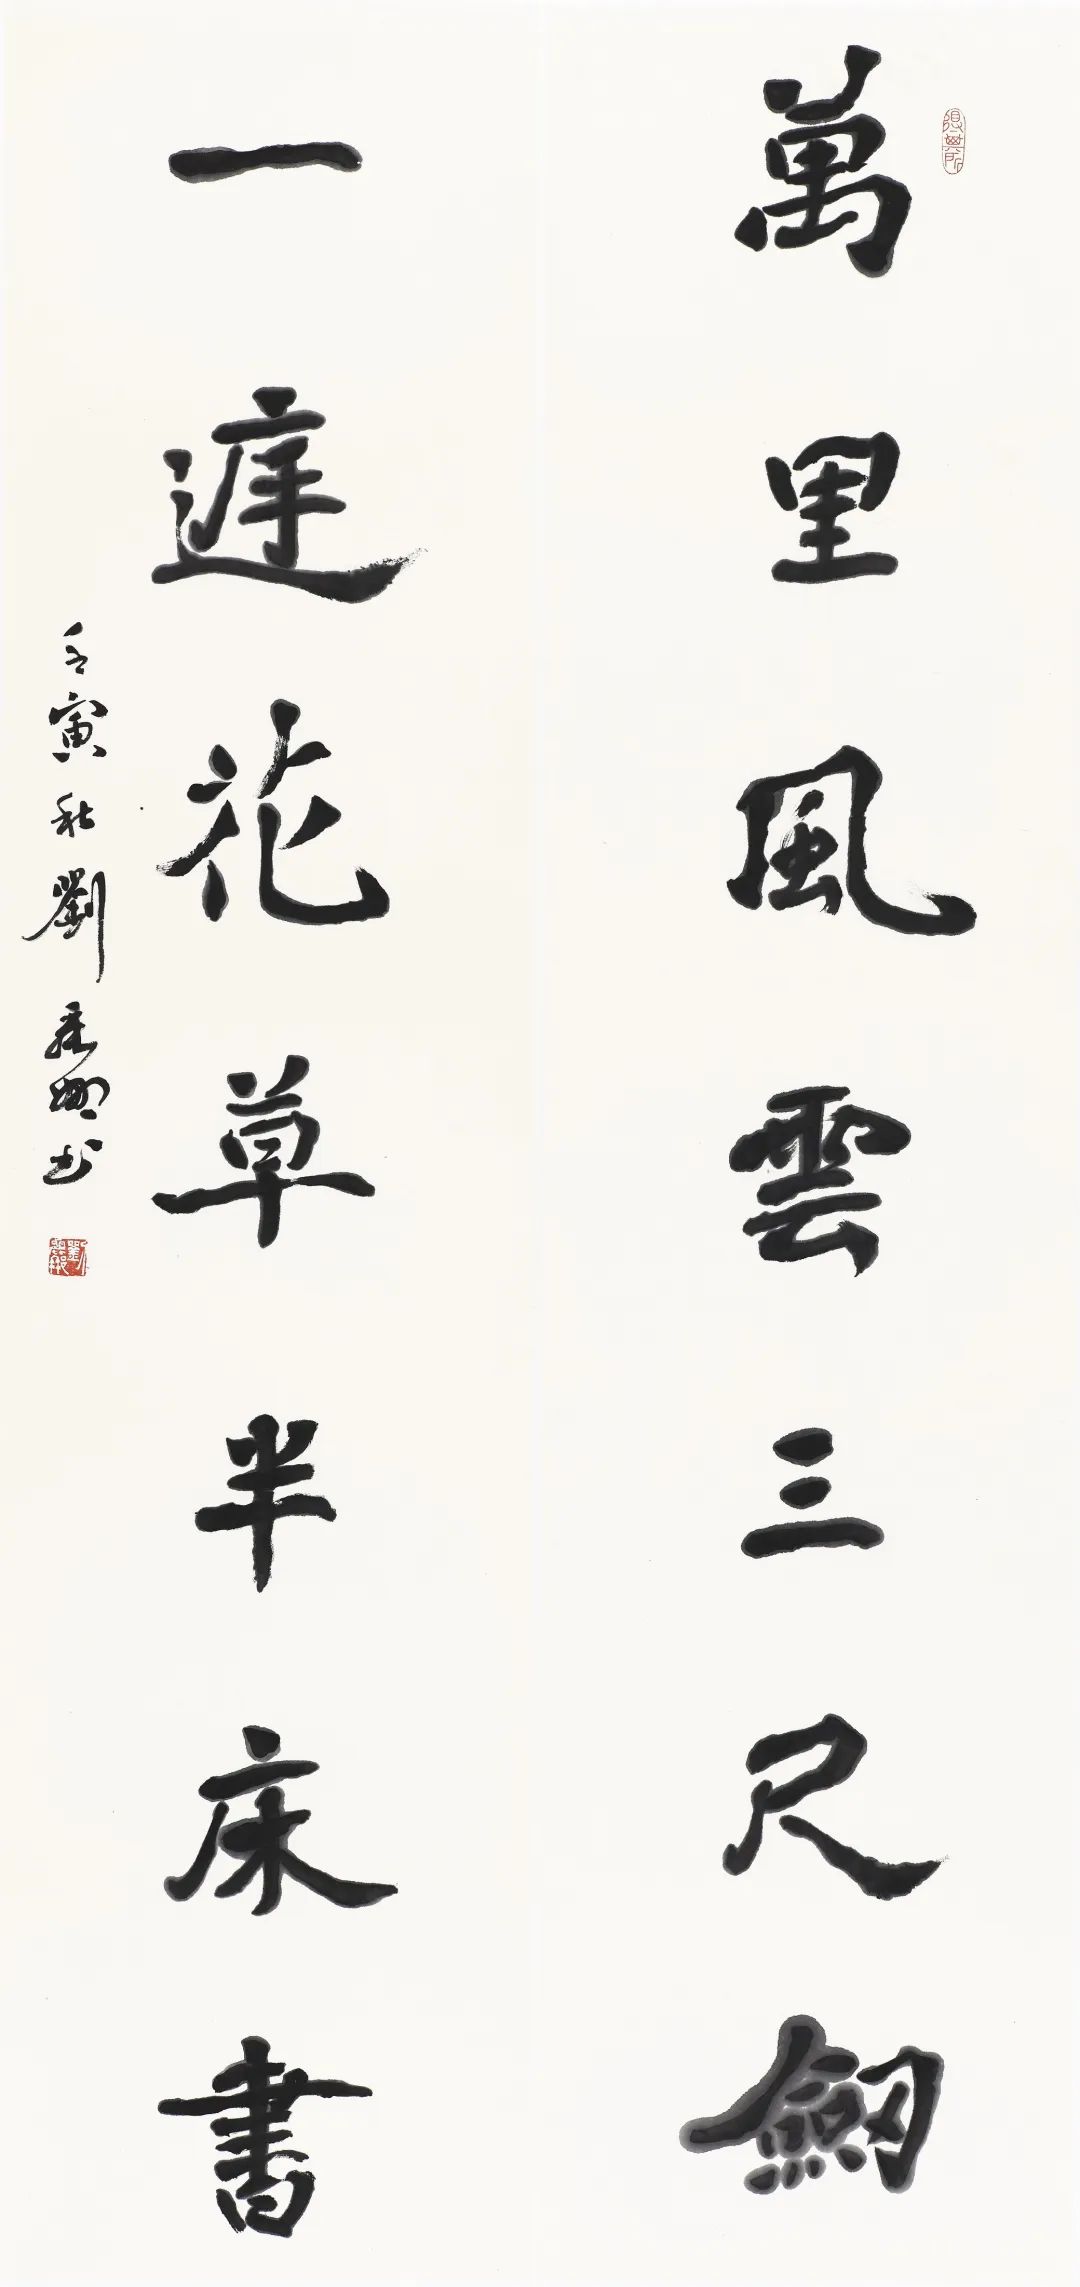 萬里風雲三尺劍
一庭花草半床書
壬寅秋劉
書